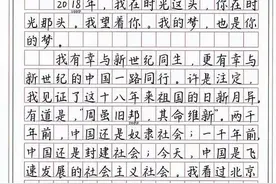 2018年，我在时光这头，你在时
光那头，我望着你。我的梦，也是你
的梦。
我有幸与新世纪同生，更有幸
与新世纪的中国一路同行。许是注定，
我见证了这十八年来祖国的日新月异。
有道是，“周虽旧邦，其命维新”，两千
年前，中国还是奴隶社会；一千年前，
中国还是封建社会；今天，中国是飞
速发展的社会主义社会。我看过北京